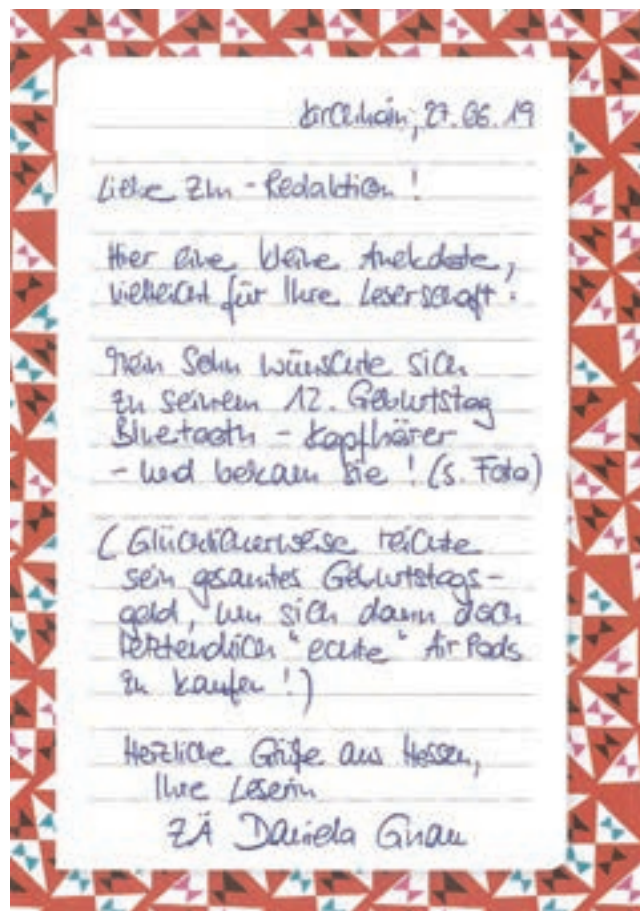 Kirchhain, 27.06.19
Liebe ZM - Redaktion !
Hier eine kleine Anekdote,
vielleicht für Ihre Leserschaft :
Mein Sohn wünschte sich
zu seinem 12. Geburtstag
Bluetooth - Kopfhörer
- und bekam sie ! (s. Foto)
( Glücklicherweise reichte
sein gesamtes Geburtstags-
geld, um sich dann doch
letztendlich "echte" AirPods
zu kaufen ! )
Herzliche Grüße aus Hessen,
Ihre Leserin
ZÄ Daniela Gnau